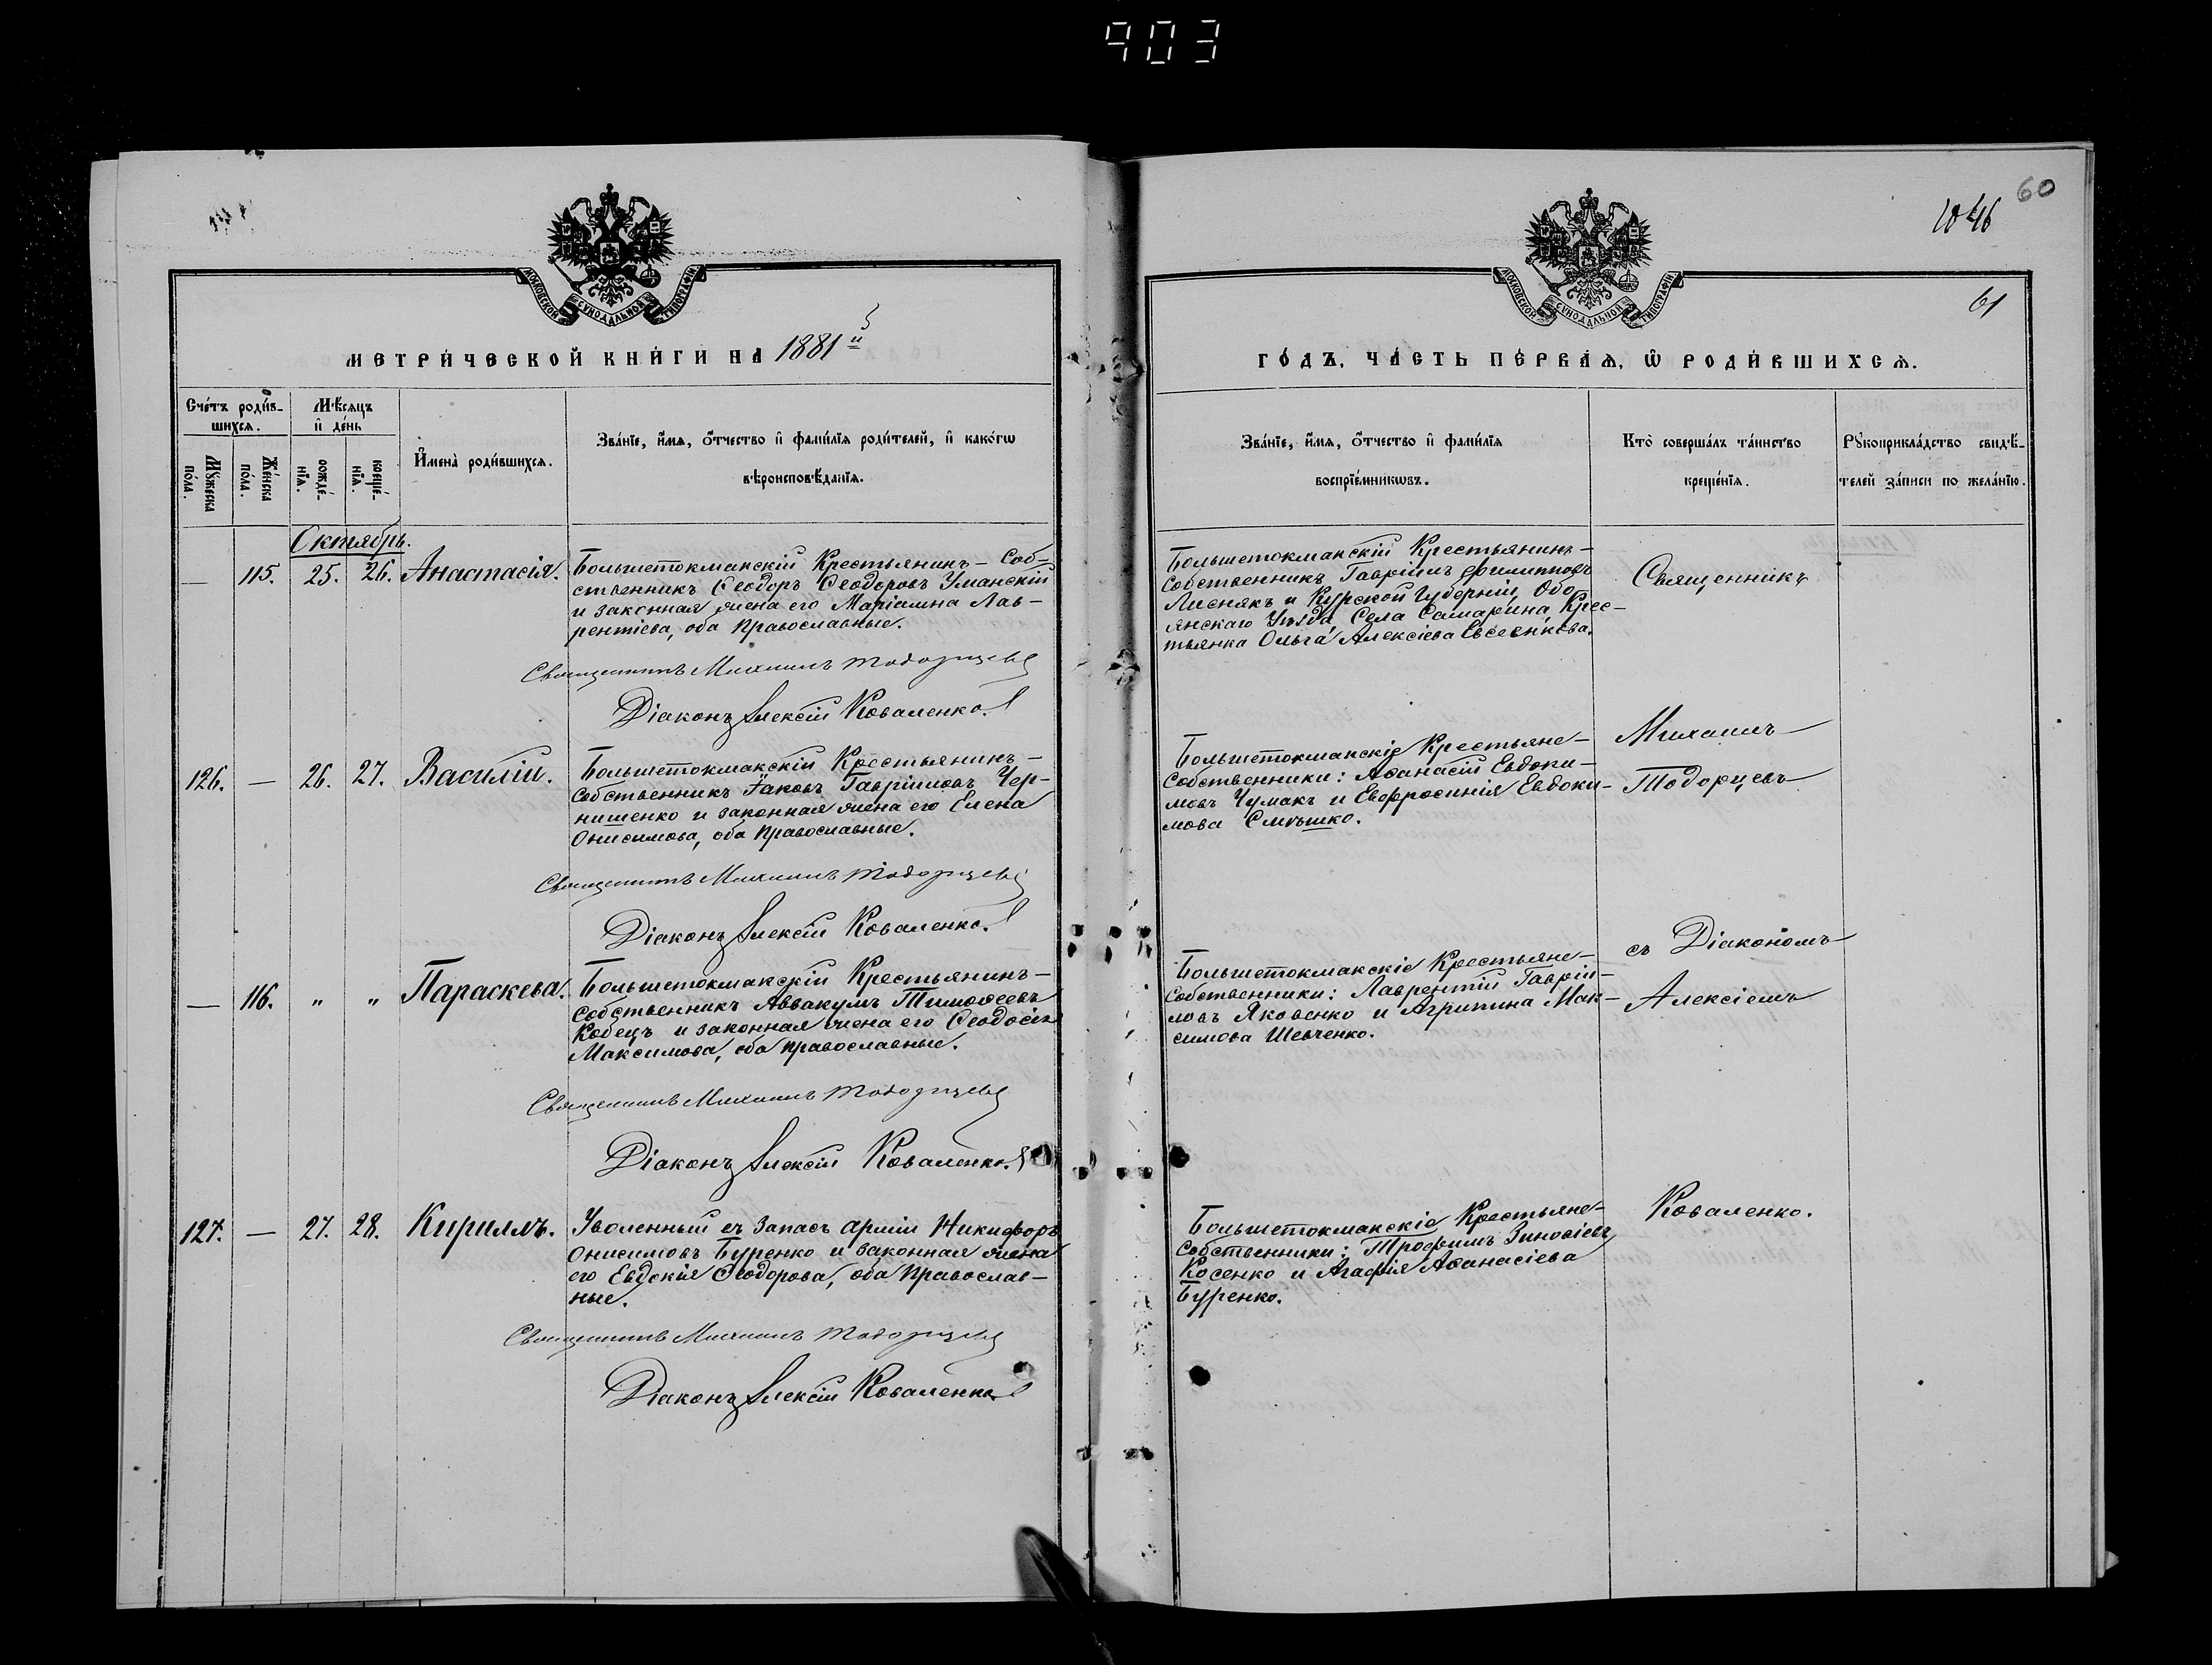 903
60
1046
61
МОСКОВСКОЙ СУНОДАЛЬНОЙ ТИПОГРАФІИ
МОСКОВСКОЙ СУНОДАЛЬНОЙ ТИПОГРАФІИ
МЕТРИ́ЧЕСКОЙ КНИ́ГИ НА 1881й
ГО́ДЪ, ЧА́СТЬ ПЕ́РВАѦ, Ѿ РОДИ́ВШИХСѦ.
Сче́тъ роди́в-
шихсѧ.
Мꙋ́жеска по́ла.
Же́нска по́ла.
Мѣ́сѧцъ
и҆ де́нь
рожде́-нїѧ.
креще́-нїѧ.
И҆мена̀ роди́вшихсѧ.
Зва́нїе, и҆́мѧ, ѻ҆́тчество и҆ фами́лїѧ роди́телей, и҆ како́гѡ
вѣроисповѣ́данїѧ.
Зва́нїе, и҆́мѧ, ѻ҆́тчество и҆ фами́лїѧ
воспрїе́мникѡвъ.
Кто̀ соверша́лъ та́инство
креще́нїѧ.
Рꙋкоприкла́дство свидѣ́-
телей за́писи по жела́нїю.
Октябрь.
— 115. 25. 26. Анастасія.
Большетокмакскій Крестьянинъ-Соб-
ственникъ Ѳеодоръ Ѳеодоровъ Уманскій
и законная жена его Маріамна Лав-
рентіева, оба Православные.
Священникъ Михаилъ Тодорцевъ
Діаконъ Алексій Коваленко.
Большетокмакскій Крестьянинъ-
Собственникъ Гавріилъ Филипповъ
Лиснякъ и Курской Губерніи, Обо
янскаго Уѣзда, Села Самарина, Крес-
тьянка Ольга Алексіева Евсеенкова.
Священникъ
126. — 26. 27. Василій.
Большетокмакскій Крестьянинъ-
Собственникъ Іаковъ Гавріиловъ Чер-
нишенко и законная жена его Елена
Онисимова, оба Православные.
Священникъ Михаилъ Тодорцевъ
Діаконъ Алексій Коваленко.
Большетокмакскіе Крестьяне-
Собственники: Аѳанасій Евдоки-
мовъ Чумакъ и Евфросинія Евдоки-
мова Смѣшко.
Михаилъ
Тодорцевъ
— 116. „ „ Параскева.
Большетокмакскій Крестьянинъ-
Собственникъ Аввакумъ Тимоѳеевъ
Кобецъ и законная жена его Ѳеодосія
Максимова, оба православные.
Священникъ Михаилъ Тодорцевъ
Діаконъ Алексій Коваленко.
Большетокмакскіе Крестьяне-
Собственники: Лаврентій Гавріи-
ловъ Яковенко и Агрипина Мак-
симова Шевченко.
съ Діакономъ
Алексіемъ
127. — 27. 28. Кириллъ.
Уволенный въ Запасъ арміи Никифоръ
Онисимовъ Буренко и законная жена
его Евдокія Ѳеодорова, оба Православ-
ные.
Священникъ Михаилъ Тодорцевъ
Діаконъ Алексій Коваленко
Большетокмакскіе Крестьяне-
Собственники: Трофимъ Зиновіевъ
Косенко и Агафія Аѳанасіева
Буренко.
Коваленко.